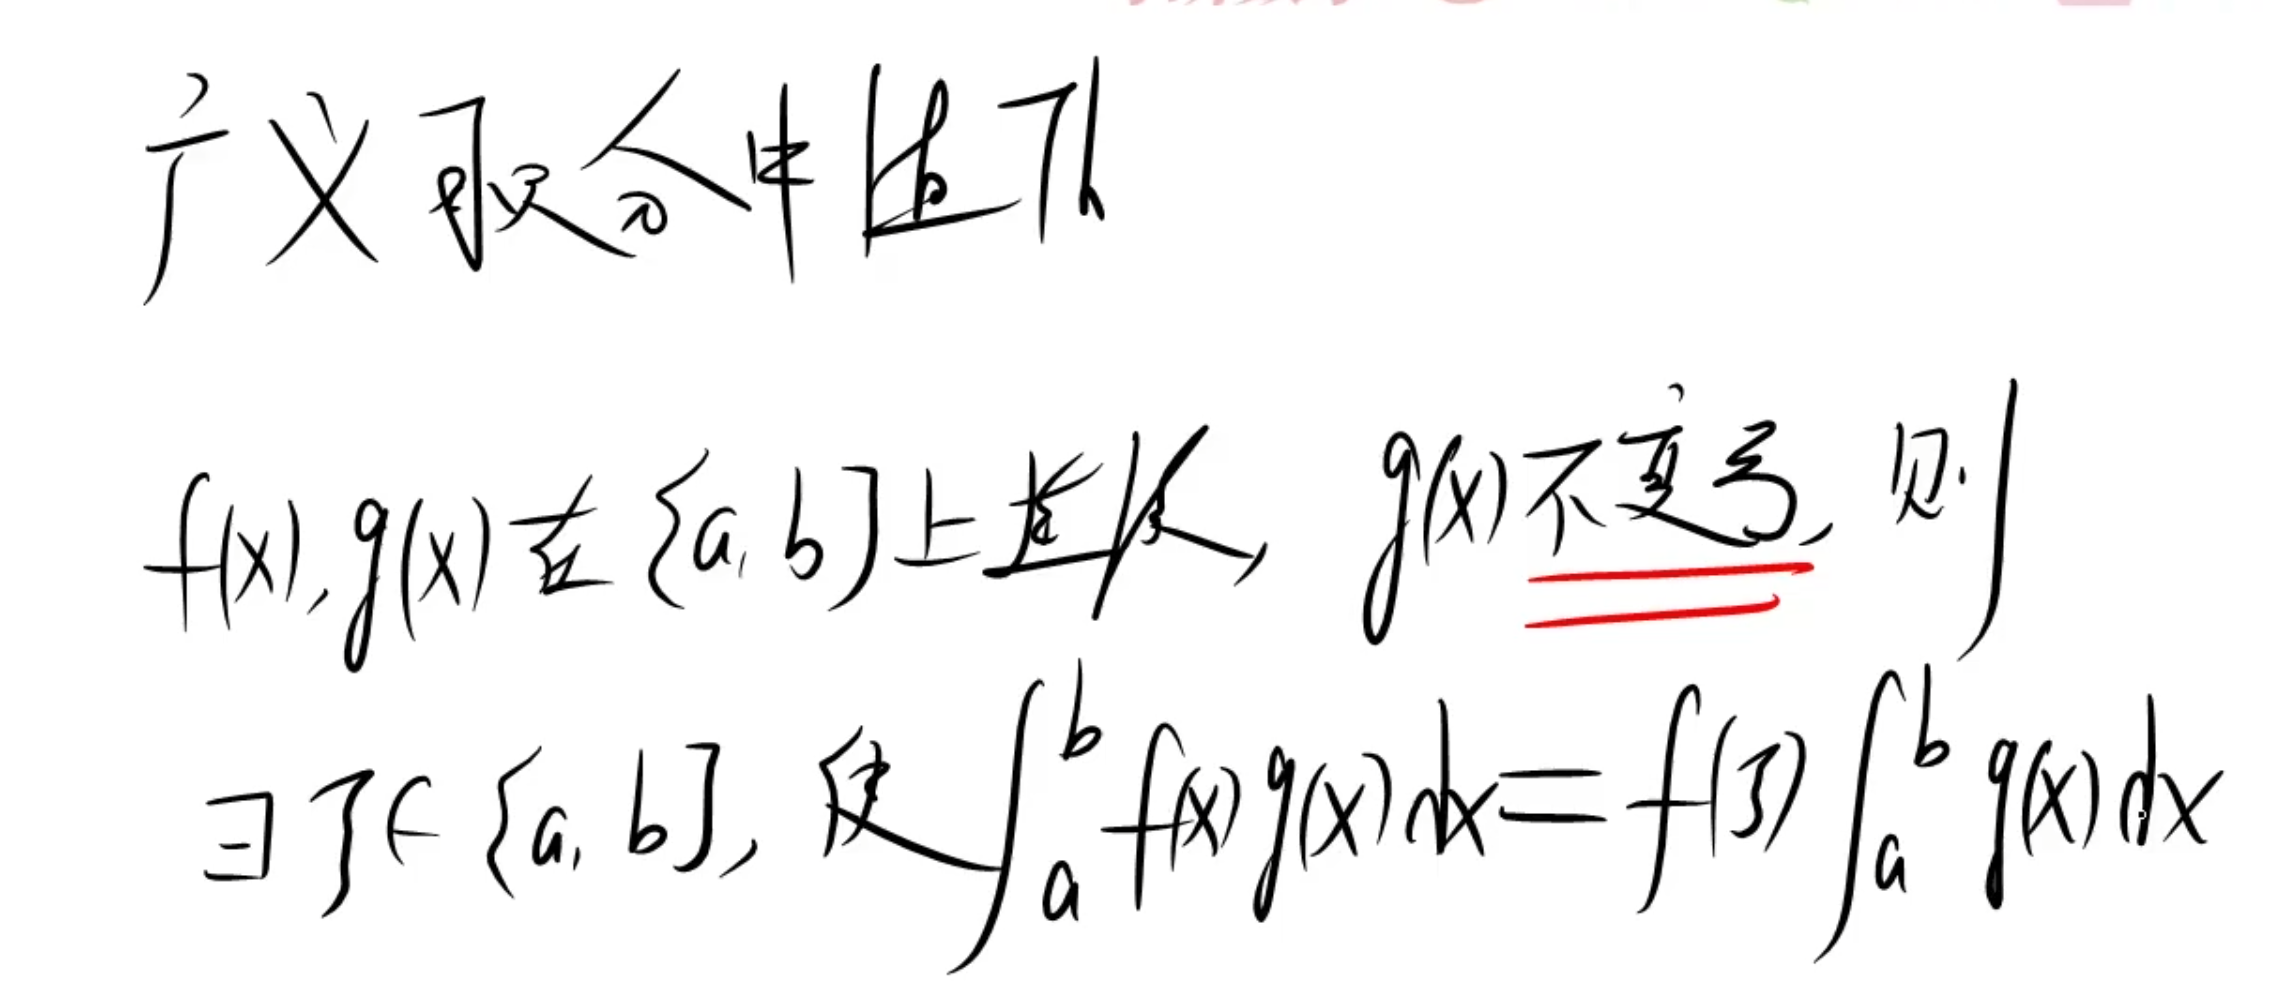 广义积分中值Th
f(x), g(x)在[a, b]上连续, g(x)不变号, 则
∃ξ∈[a, b], 使∫_a^b f(x)g(x)dx = f(ξ)∫_a^b g(x)dx